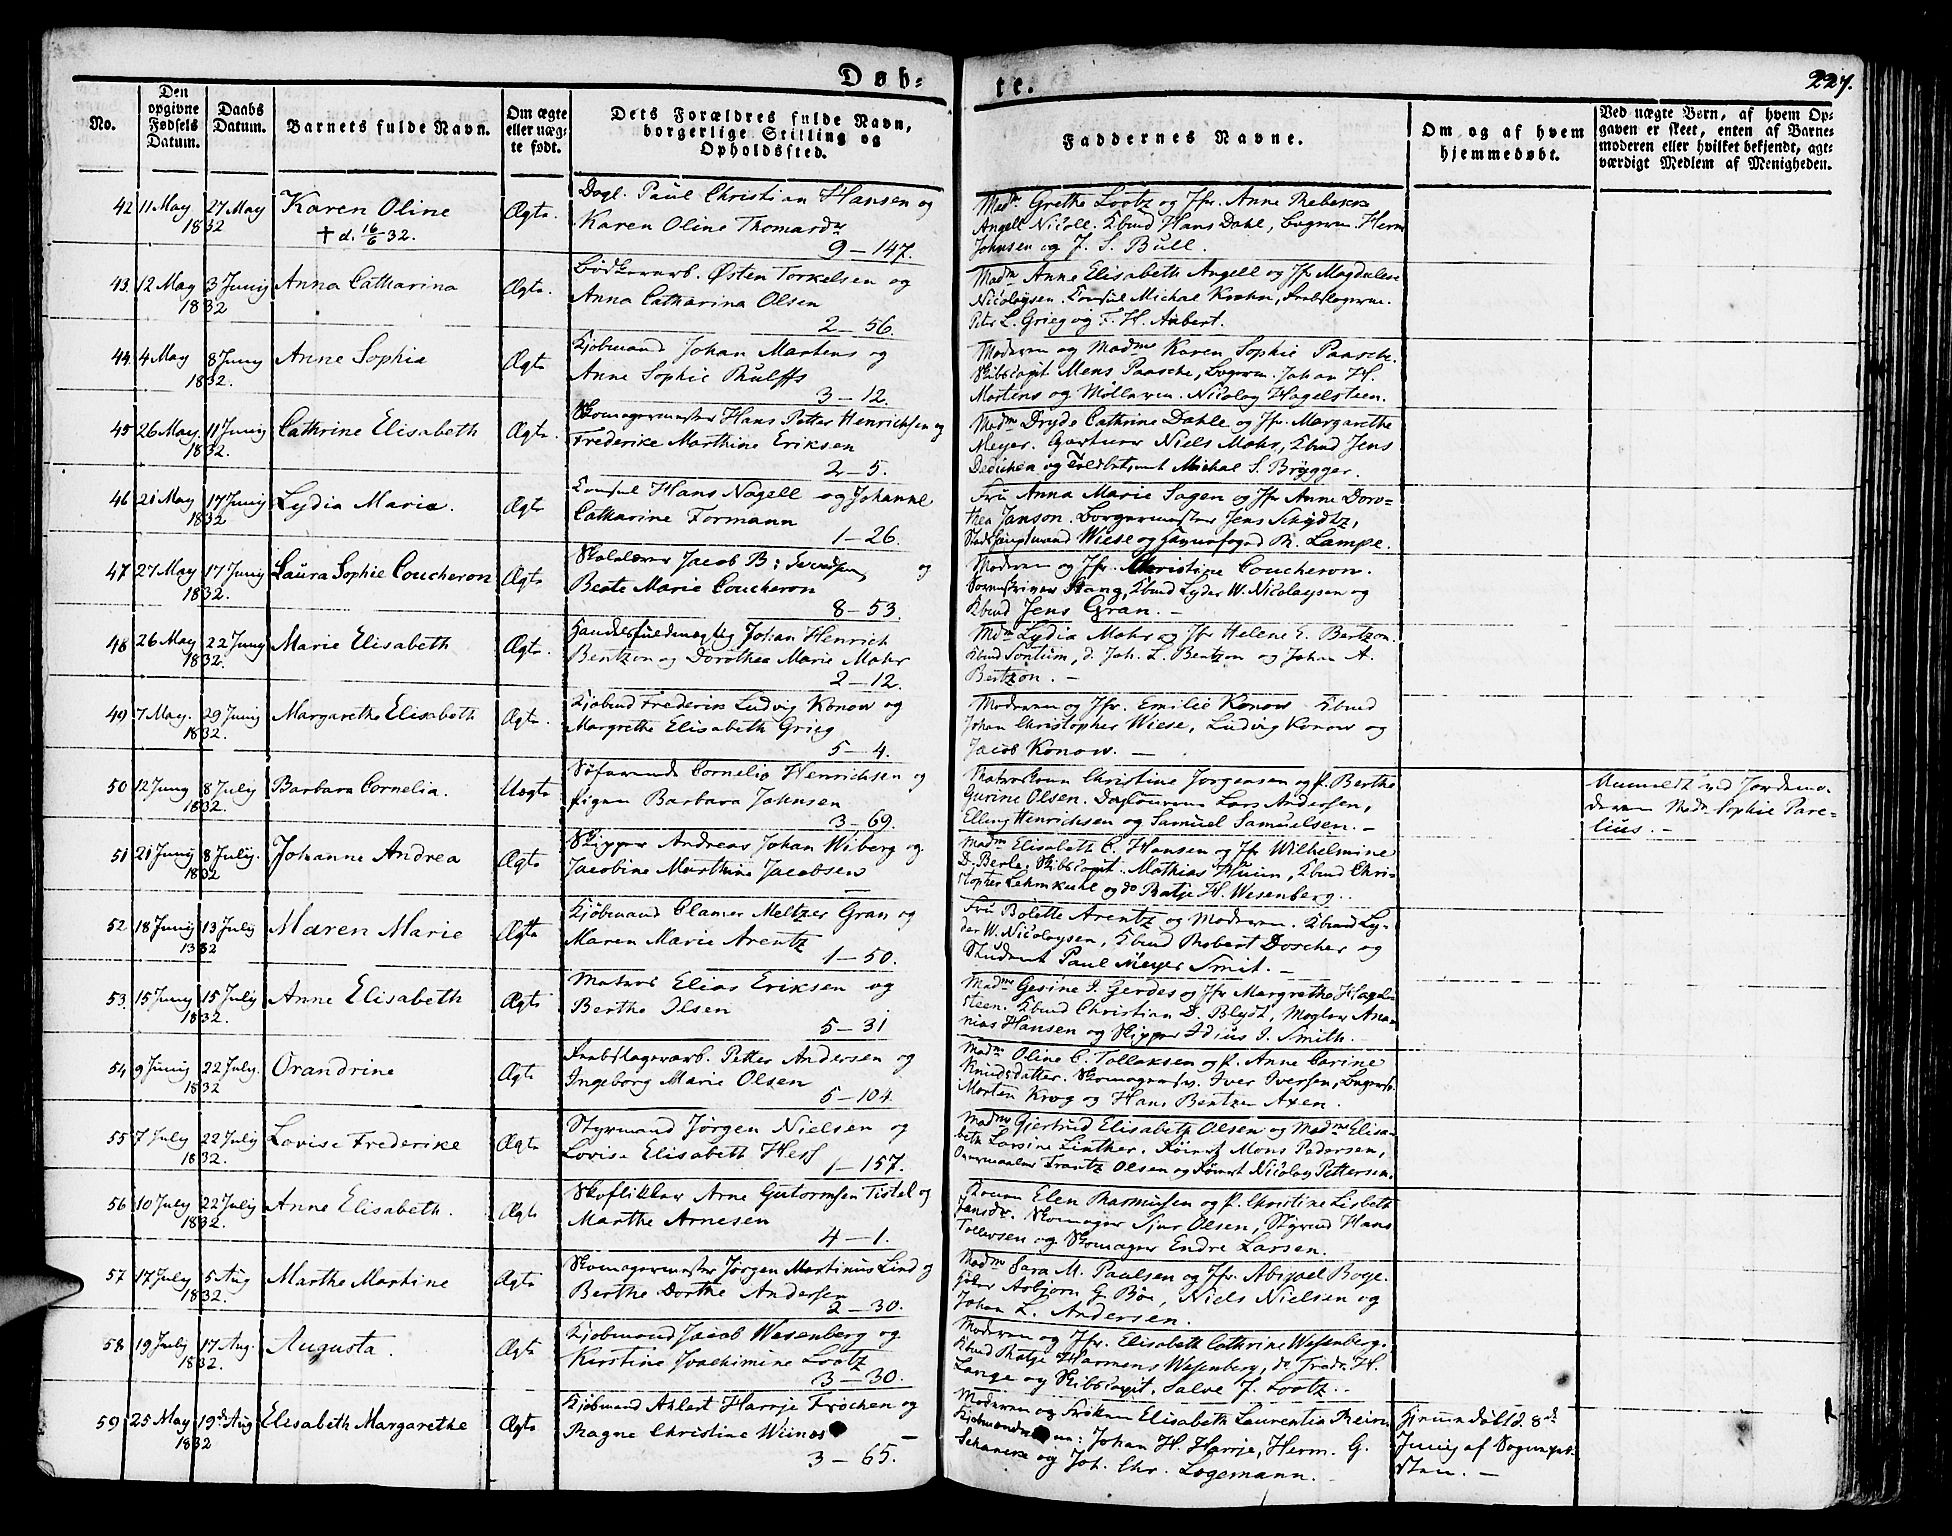 Døb-
te.
227.
No.
Den opgivne Fødsels Datum.
Daabs Datum.
Barnets fulde Navn.
Om ægte eller uæg-te født.
Dets Forældres fulde Navn, borgerlige Stilling og Opholdssted.
Faddernes Navne.
Om og af hvem hjemmedøbt.
Ved uægte Børn, af hvem Op-gaven er skeet, enten af Barne-moderen eller hvilket bekjendt, agt-værdigt Medlem af Menigheden.
42 11 May 27 May 1832 Karen Oline Ægte
† d. 16/6 32.
Dagl. Paul Christian Hansen og
Karen Oline Thomasdr
9 – 147.
Madm Grethe Lootz og Jfr. Anne Rebekka
Angell Nicoll. Kbmd Hans Dahl, Bogrvm. Herm
Johnsen og J. S. Bull.
43. 12 May 3 Juny 1832 Anna Catharina Ægte.
Bødkerarb. Østen Torkelsen og
Anna Catharina Olsen
2 – 56.
Madm Anne Elisabeth Angell og Jfr Magdalene
Nicolaysen. Consul Michal Krohn,
Peter L. Grieg og F. H. Aubert.
44. 4 May 8 Juny 1832. Anne Sophie Ægte
Kjøbmand Johan Martens og
Anne Sophie Rulffs
3 – 12.
Moderen og Madme Karen Sophie Paasche.
Skibscapit Mens Paasche, Johan H.
Martens og Nicolay Hagelsteen.
45 26 May. 11 Juny 1832. Cathrine Elisabeth Ægte.
Skomagermester Hans Petter Henrichsen og
Frederike Marthine Eriksen
2 – 5.
Madm Dryde Cathrine Dahle og Jfr. Margarethe
Meyer. Garver Niels Mohr, Kbmd Jens
Dedichen og Toldbetient Michal S. Brygger.
46 21 May 17 Juny 1832 Lydia Maria. Ægte
Consul Hans Nagell og Johanne
Catharine Formann
1 – 26.
Fru Anna Marie Sagen og Jfr Anne Doro-
thea Janson. Borgermester Jens Schydtz,
Stadshauptmand Wiese og Havnefoged R. Lampe.
47 27 May 17 Juny 1832. Laura Sophie Coucheron Ægte
Skolelærer Jacob B: Svendsen og
Beate Marie Coucheron
8 – 53.
Moderen og Jfr. Christine Coucheron.
Sorenskriver Stang, Kbmd Lyder W. Nicolaysen og
Kbmd Jens Gran. –
48 26 May 22 Juny 1832. Marie Elisabeth Ægte.
Handelsfuldmægtig Johan Henrich
Bentzon og Dorothea Marie Mohr
2 – 12.
Mdm Lydia Mohr og Jfr Helene E. Bertzon.
Kbmd Sontum, d. Joh. L. Bentzon og Johan A.
Bentzon. –
49 7 May. 29 Juny 1832. Margarethe Elisabeth Ægte.
Kjøbmd Frederik Ludvig Konow og
Margrethe Elisabeth Grieg
5 – 4.
Moderen og Jfr. Emilie Konow Kbmd
Johan Christopher Wiese, Ludvig Konow og
Jacob Konow. –
50 12 Juny 8 July 1832. Barbara Cornelia. Uægte
Søfarende Cornelis Henrichsen og
Pigen Barbara Johnsen
3 – 69.
Matroskonen Christine Jørgensen og P. Berthe
Gurine Olsen. Lars Andersen,
Elling Henrichsen og Samuel Samuelsen. –
Anmeldt ved Jordemo-
deren Madm Sophie Pare-
lius. –
51 21 Juny 8 July. 1832 Johanne Andrea Ægte
Skipper Andreas Johan Wiberg og
Jacobine Marthine Jacobsen
Madm Elisabeth C. Hansen og Jfr Wilhelmine
D. Berle. Skibscapit. Mathias Kbmd Chri-
stopher Lehmkuhl og do Ratje H. Wesenberg.
52. 18 Juny 13 July 1832 Maren Marie Ægte
Kjøbmand Clamer Meltzer Gran og
Maren Marie Arentz
1 – 50.
Fru Bolette Arentz og Moderen. Kbmd Ly-
der W. Nicolaysen, Kbmd Robert Doscher og
Student Paul Meyer Smit. –
53. 15 Juny 15 July 1832. Anne Elisabeth Ægte
Matros Elias Eriksen og
Berthe Olsen
5 – 31
Madme Gesine J. Gerdes og Jfr Margrethe Hagel-
steen. Kbmd Christian D. Blydt, Mægler Ana-
nias Hansen og Skipper Idius J. Smith.
54 9 Juny 22 July. 1832 Orandrine Ægte
Petter Andersen og
Ingeborg Marie Olsen
5 – 104.
Madm Oline C. Tollaksen og P. Anne Carine
Knudsdatter. Skomagersv. Iver Iversen,
Morten Krog og Hans Bentzen Axen.
55 7 July 22 July 1832. Lovise Frederike Ægte
Styrmand Jørgen Nielsen og
Lovise Elisabeth Hess
1 – 157.
Madme Gjertrud Elisabeth Olsen og Madme Elisa-
beth Larsine Linther. Mons Pedersen,
Frantz Olsen og Nicolay Pettersen.
56 10 July 22 July 1832. Anne Elisabeth. Ægte
Skoflikker Arne Gutormsen Tistel og
Marthe Arnesen
4 – 1.
Konen Elen Rasmussen og P. Christine Lisbeth
Jansdr. Skomager Sjur Olsen, Styrmd Hans
Tollevsen og Skomager Endre Larsen.
57 17 July 5 Aug 1832. Marthe Martine Ægte
Skomagermester Jørgen Martinus Lind og
Berthe Dorthe Andersen
2 – 30.
Madme Sara M. Paulsen og Jfr. Abigael Boge.
Asbjørn G. Bøe, Niels Nielsen og
Johan L. Andersen.
58 19 July 17 Aug. 1832. Augusta. Ægte
Kjøbmand Jacob Wesenberg og
Kirstine Joachimine Lootz
3 – 30.
Moderen og Jfr. Elisabeth Cathrine Wesenberg.
Kbmd Ratje Harmens Wesenberg, do Fredr. H.
Lange og Skibscapit. Salve J. Lootz.
59 25 May 19de Aug 1832 Elisabeth Margarethe Ægte
Kjøbmand Ahlert Harrje Frøchen og
Ragne Christine Weinas –
3 – 65.
Moderen og Frøken Elisabeth Laurentia
Kjøbmændene: Johan H. Harrje, Herm. G.
Schanche og Joh. Chr. Logemann.
Hjemmedøbt d. 8de
Juny af Sognepræ-
sten. –